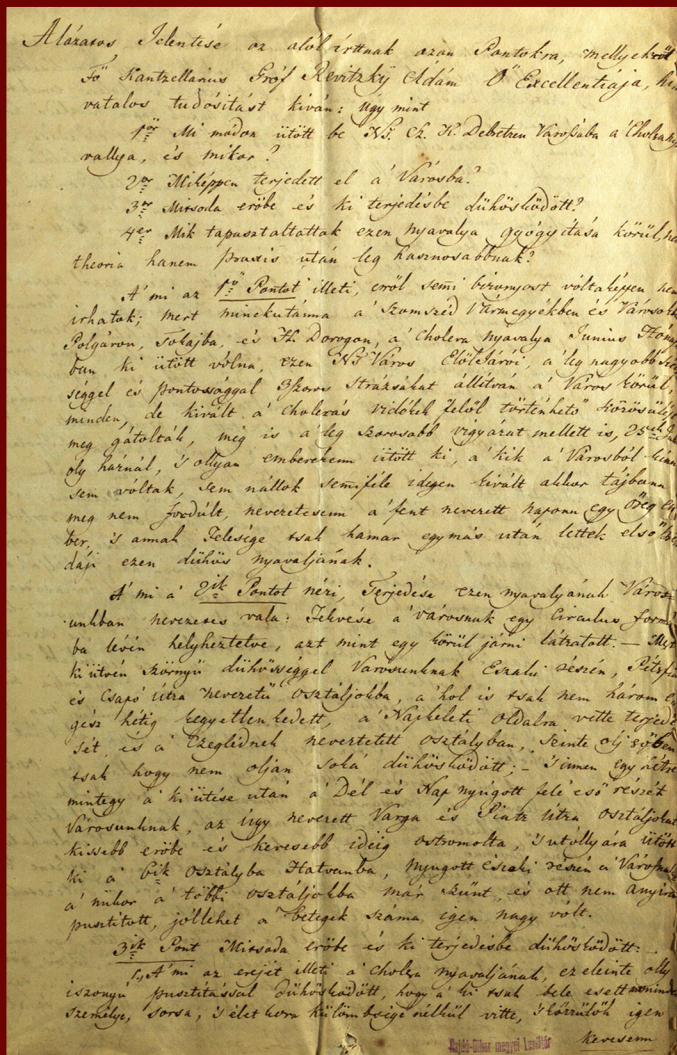 Alázatos Jelentése az alól írttnak azon Pontokra, mellyekről
Fő Kantzellárius Gróf Revitzky Ádám Ő Excellentiája, hi
vatalos tudósítást kiván: úgy mint
1ör Mi módon ütött be Ns. Sz. K. Debretzen Városába a' Cholera nya
vallya, és mikor?
2or Miképpen terjedett el a' Városba?
3or Mitsoda erőbe és ki terjedésbe dühösködött?
4er Mik tapasztaltattak ezen nyavalya gyógyítása körül, ne
theoria hanem praxis után leg hasznosabbnak?
A' mi az 1ö Pontot illeti, erről semi bizonyost vóltaképpen nem
írhatok; mert minekutánna a' Szomszéd Vármegyékben és Városok
Polgáron, Tokajba, és H. Dorogon, a' Cholera nyavalya Junius Hóna
ban ki ütött vólna, ezen Ns Város Elöljárói, a' leg nagyobb
séggel és pontossággal 3szoros Strázsákat állítván a' Város körül,
minden, de kivált a' cholerás vidékek felől történhető közösülést
meg gátolták, még is a' leg szorosabb vigyázat mellett is, 25
oly háznál, 's ollyan emberekenn ütött ki, a' kik a' Városból
sem vóltak, sem nállok semiféle idegen kivált akkor tájbann
meg nem fordúlt, nevezetesenn a' fent nevezett naponn egy öreg em
ber, 's annak Felesége tsak hamar egymás után lettek első
dáji ezen dühös nyavaljának.
A' mi a' 2ik Pontot nézi, Terjedése ezen nyavaljának Város
unkban nevezetes vala: Fekvése a' városnak egy Circulus formá
ba lévén helyheztetve, azt mint egy körül járni látzatott. —
kiütvén szörnyű dühösséggel Városunknak Északi részén, Péterfia
és Csapó útza nevezetű osztáljokba, a' hol is tsak nem három e
gész hétig kegyetlenkedett, a' Napkeleti oldalra vette terjedé
sét, és a' Czeglédnek neveztetett osztályban, szinte olj erőben
tsak hogy nem olján soká dühösködött; — 's innen
mintegy a' ki ütése után a' Dél és Nap nyúgott felé eső részét
Városunknak, az úgy nevezett Varga és Piatz útza osztáljokat
kissebb erőbe és kevesebb ideig ostromolta, 's utóllyára ütött
ki a' 6ik osztályba Hatvanba, nyúgott északi részén a' Városnak
a' mikor a' többi osztáljokba már szünt, és ott nem anyira
pusztított, jóllehet a' betegek száma igen nagy vólt.
3ik Pont Mitsoda erőbe és ki terjedésbe dühösködött:
A' mi az erejét illeti a' cholera nyavaljának, ez eleinte olly
iszonyú pusztítással dühösködött, hogy a' ki tsak bele esett minden
személye, sorsa, 's élet kora külömbsége nélkül vitte, igen
kevesenn
Hajdú-Bihar megyei Levéltár